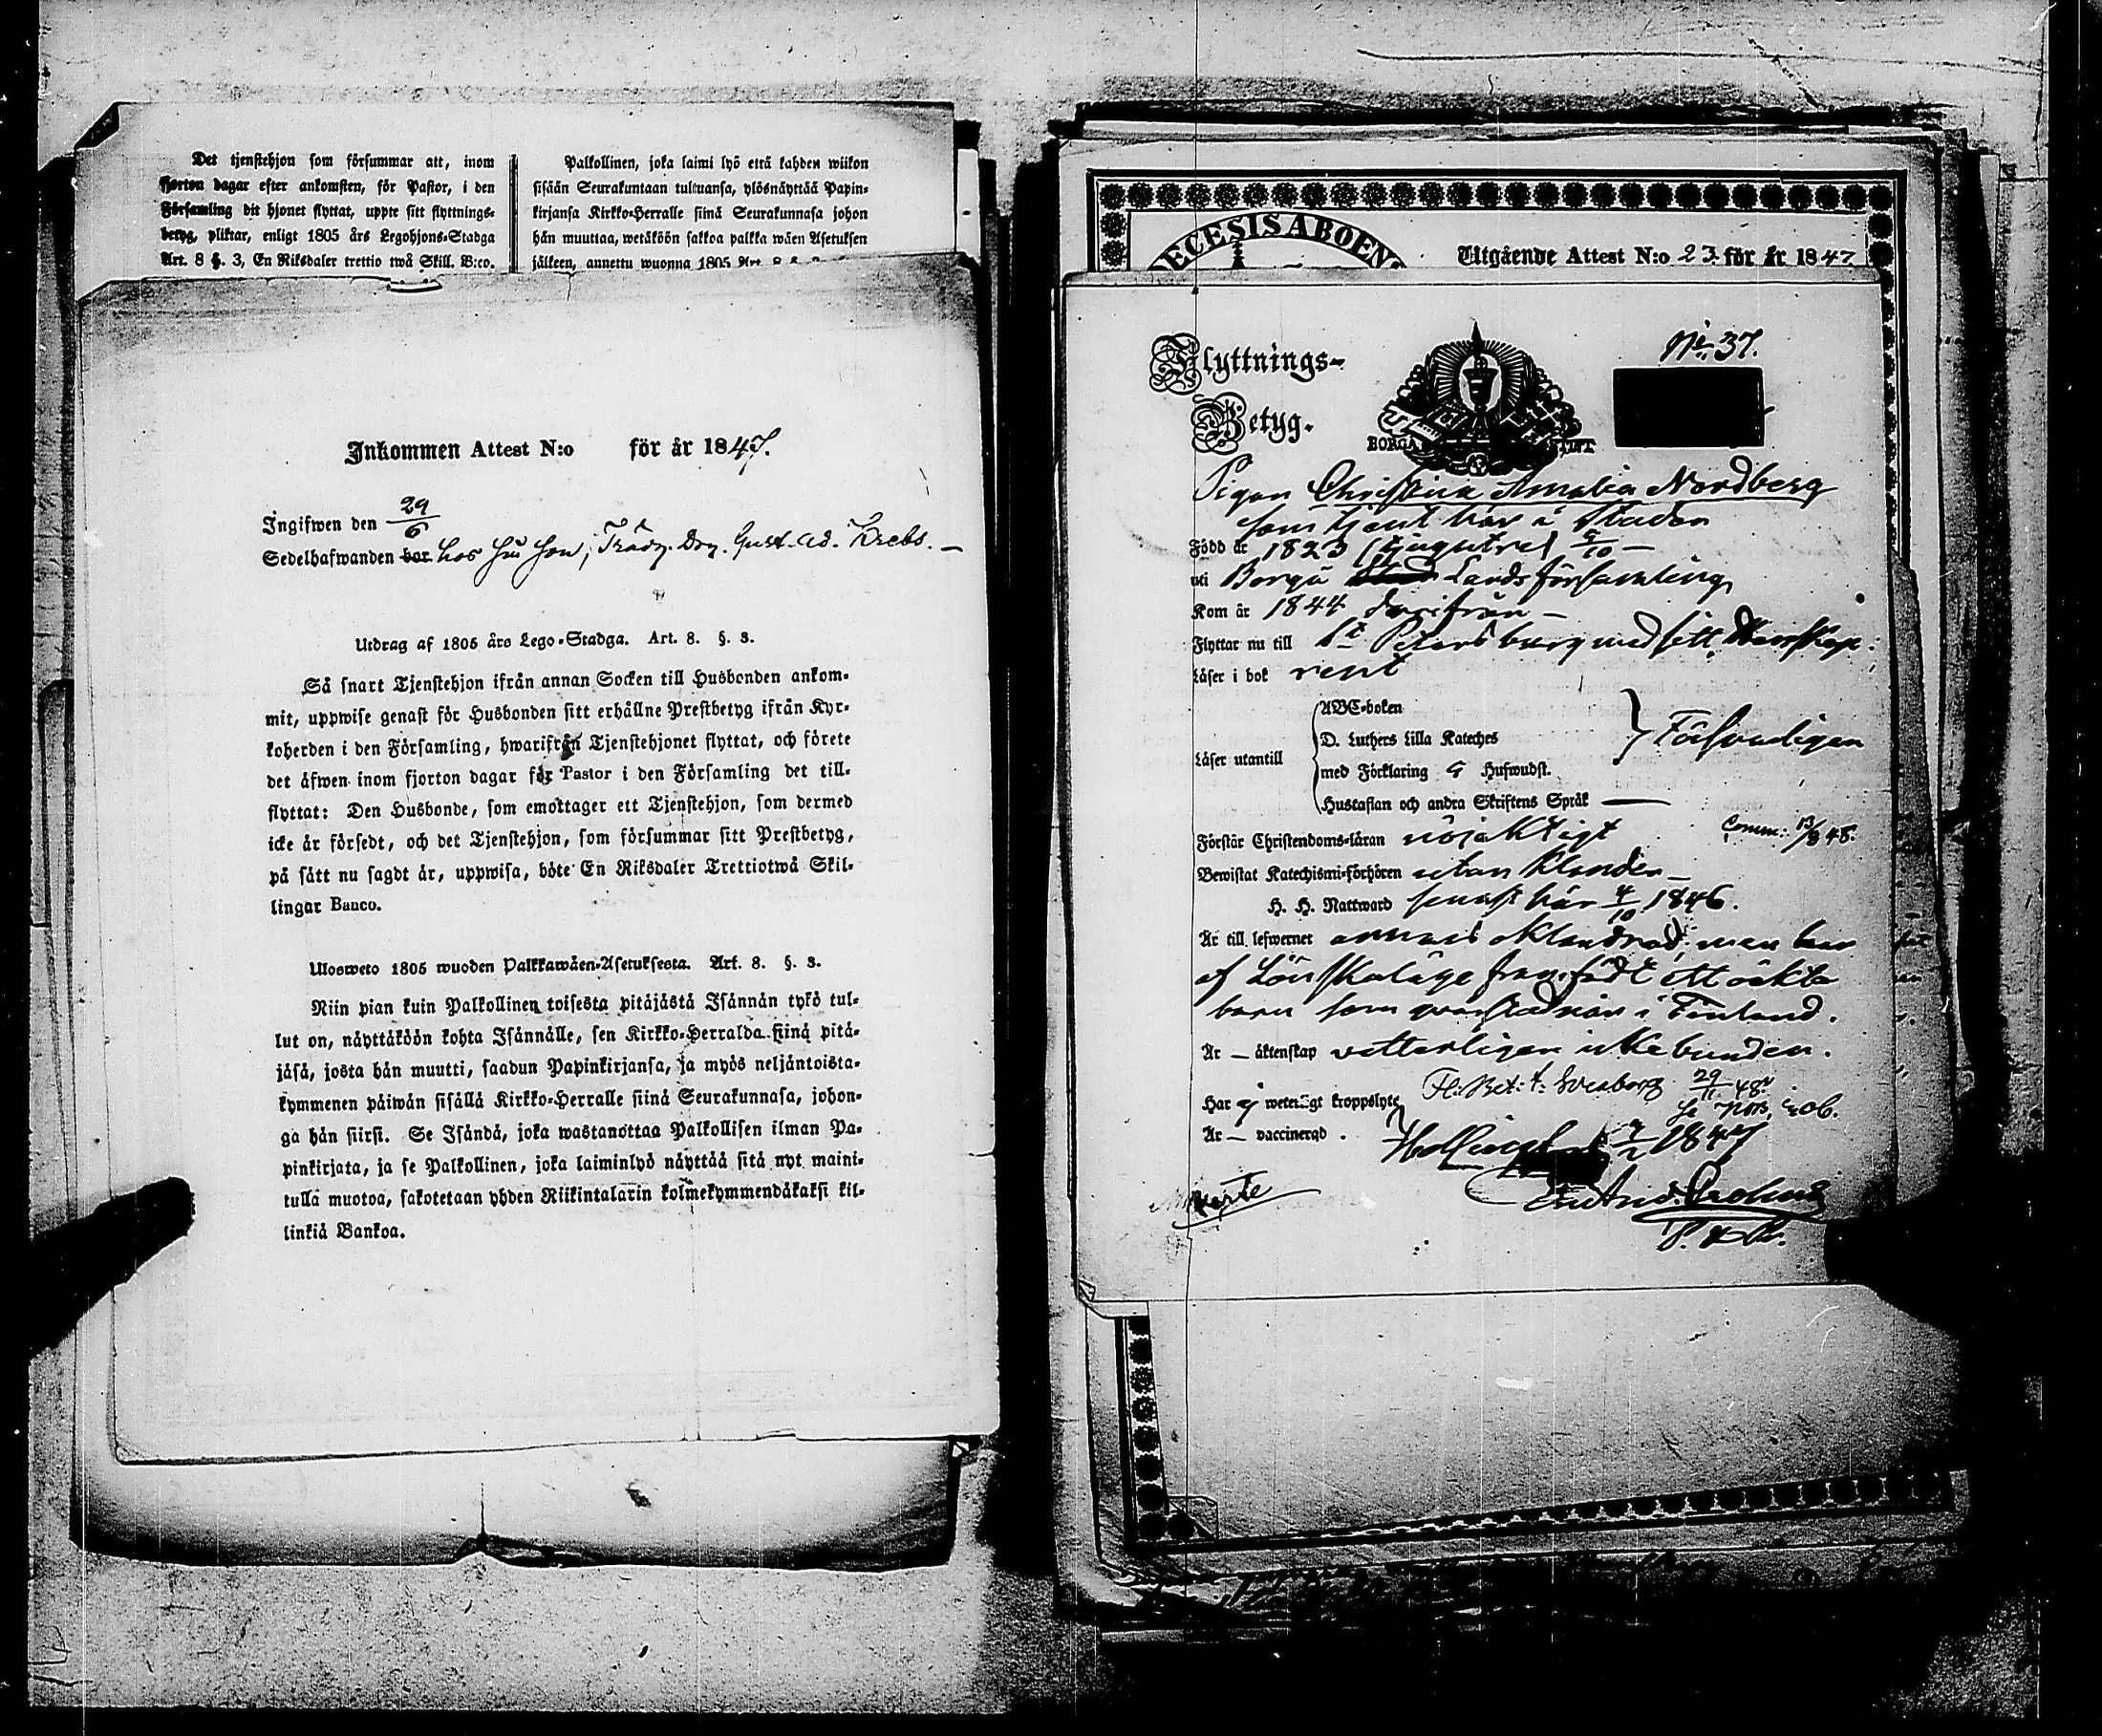 Det tjenstehjon som försummar att, inom
fjorton dagar efter ankomsten, för Pastor, i den
Församling dit hjonet flyttat, uppte sitt flyttnings-
betyg, pliktar, enligt 1805 års Legohjons-Stadga
Art. 8 §. 3, En Riksdaler trettio twå Skill. B:co.
Palkollinen, joka laimi lyö että kahden wiikon
sisään Seurakuntaan tultuansa, ylösnäyttää Papin-
kirjansa Kirkko-Herralle siinä Seurakunnasa johon
hän muuttaa, wetäköön sakkoa palkka wäen Asetuksen
jälkeen, annettu wuonna 1805 Art. 8 §.
Inkommen Attest N:o för år 1847.
Ingifwen den 29/6
Sedelhafwanden bor hos
Gust. Ad. Krebs.
Utdrag af 1805 års Lego-Stadga. Art. 8. §. 3.
Så snart Tjenstehjon ifrån annan Socken till Husbonden ankom-
mit, uppwise genast för Husbonden sitt erhållne Prestbetyg ifrån Kyr-
koherden i den Församling, hwarifrån Tjenstehjonet flyttat, och förete
det äfwen inom fjorton dagar för Pastor i den Församling det till-
flyttat: Den Husbonde, som emottager ett Tjenstehjon, som dermed
icke är försedt, och det Tjenstehjon, som försummar sitt Prestbetyg,
på sätt nu sagdt är, uppwisa, böte En Riksdaler Trettiotwå Skil-
lingar Banco.
Ulosweto 1805 wuoden Palkkawäen-Asetuksesta. Art. 8. §. 3.
Niin pian kuin Palkollinen toisesta pitäjästä Isännän tykö tul-
lut on, näyttäköön kohta Isännälle, sen Kirkko-Herralda siinä pitä-
jäsä, josta hän muutti, saadun Papinkirjansa, ja myös neljäntoista-
kymmenen päiwän sisällä Kirkko-Herralle siinä Seurakunnasa, johon-
ga hän siirsi. Se Isändä, joka wastanottaa Palkollisen ilman Pa-
pinkirjata, ja se Palkollinen, joka laiminlyö näyttää sitä nyt maini-
tulla muotoa, sakotetaan yhden Riikintalarin kolmekymmendäkaksi kil-
linkiä Bankoa.
DECESIS ABOENS
Utgående Attest N:o 23 för år 1847
Flyttnings-
Betyg.
BORGÅ STIFT
No 37.
Pigan Christina Amalia Nordberg
som tjent här i Staden
Född år 1823 (tjugutre) 9/10
uti Borgå Landsförsamling
Kom år 1844 därifrån
Flyttar nu till St Petersburg med sitt Herrskap.
Läser i bok rent
Läser utantill
ABC-boken
D. Luthers Lilla Kateches
med Förklaring 5 Hufwudst.
Hustaflan och andra Skriftens Språk
Försvarligen
Förstår Christendoms-läran nöjaktigt
Comm: 13/8 48.
Bewistat Katechismi-förhören utan klander
H. H. Nattward senast här 4/10 1846.
Är till lefwernet annars oklandrad, men har
af Lönskaläge framfödt ett oäkta
barn som qvarstadnar i Finland.
Är — äktenskap vetterligen icke bunden.
Har ej weterligt kroppslyte
Fl: Bet: t: Sveaborg 29/11 48.
Är — vaccinerad.
Helsingfors 9/2 1847